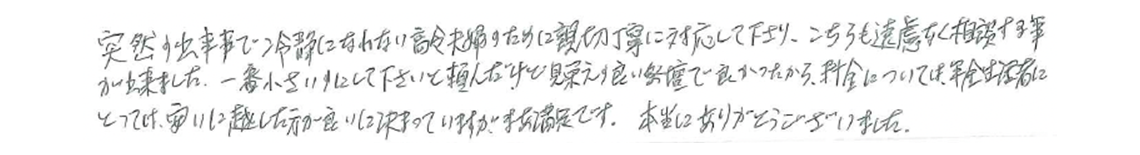 突然の出来事で冷静になれない高令夫婦のために親切丁寧に対応して下さり、こちらも遠慮なく相談する事
が出来ました。一番小さいのにして下さいと頼んだけど見栄えの良い祭壇で良かったから、料金については、年金生活者に
とっては、安いに越した方が良いに決まっていますが、まあ満足です。 本当にありがとうございました。